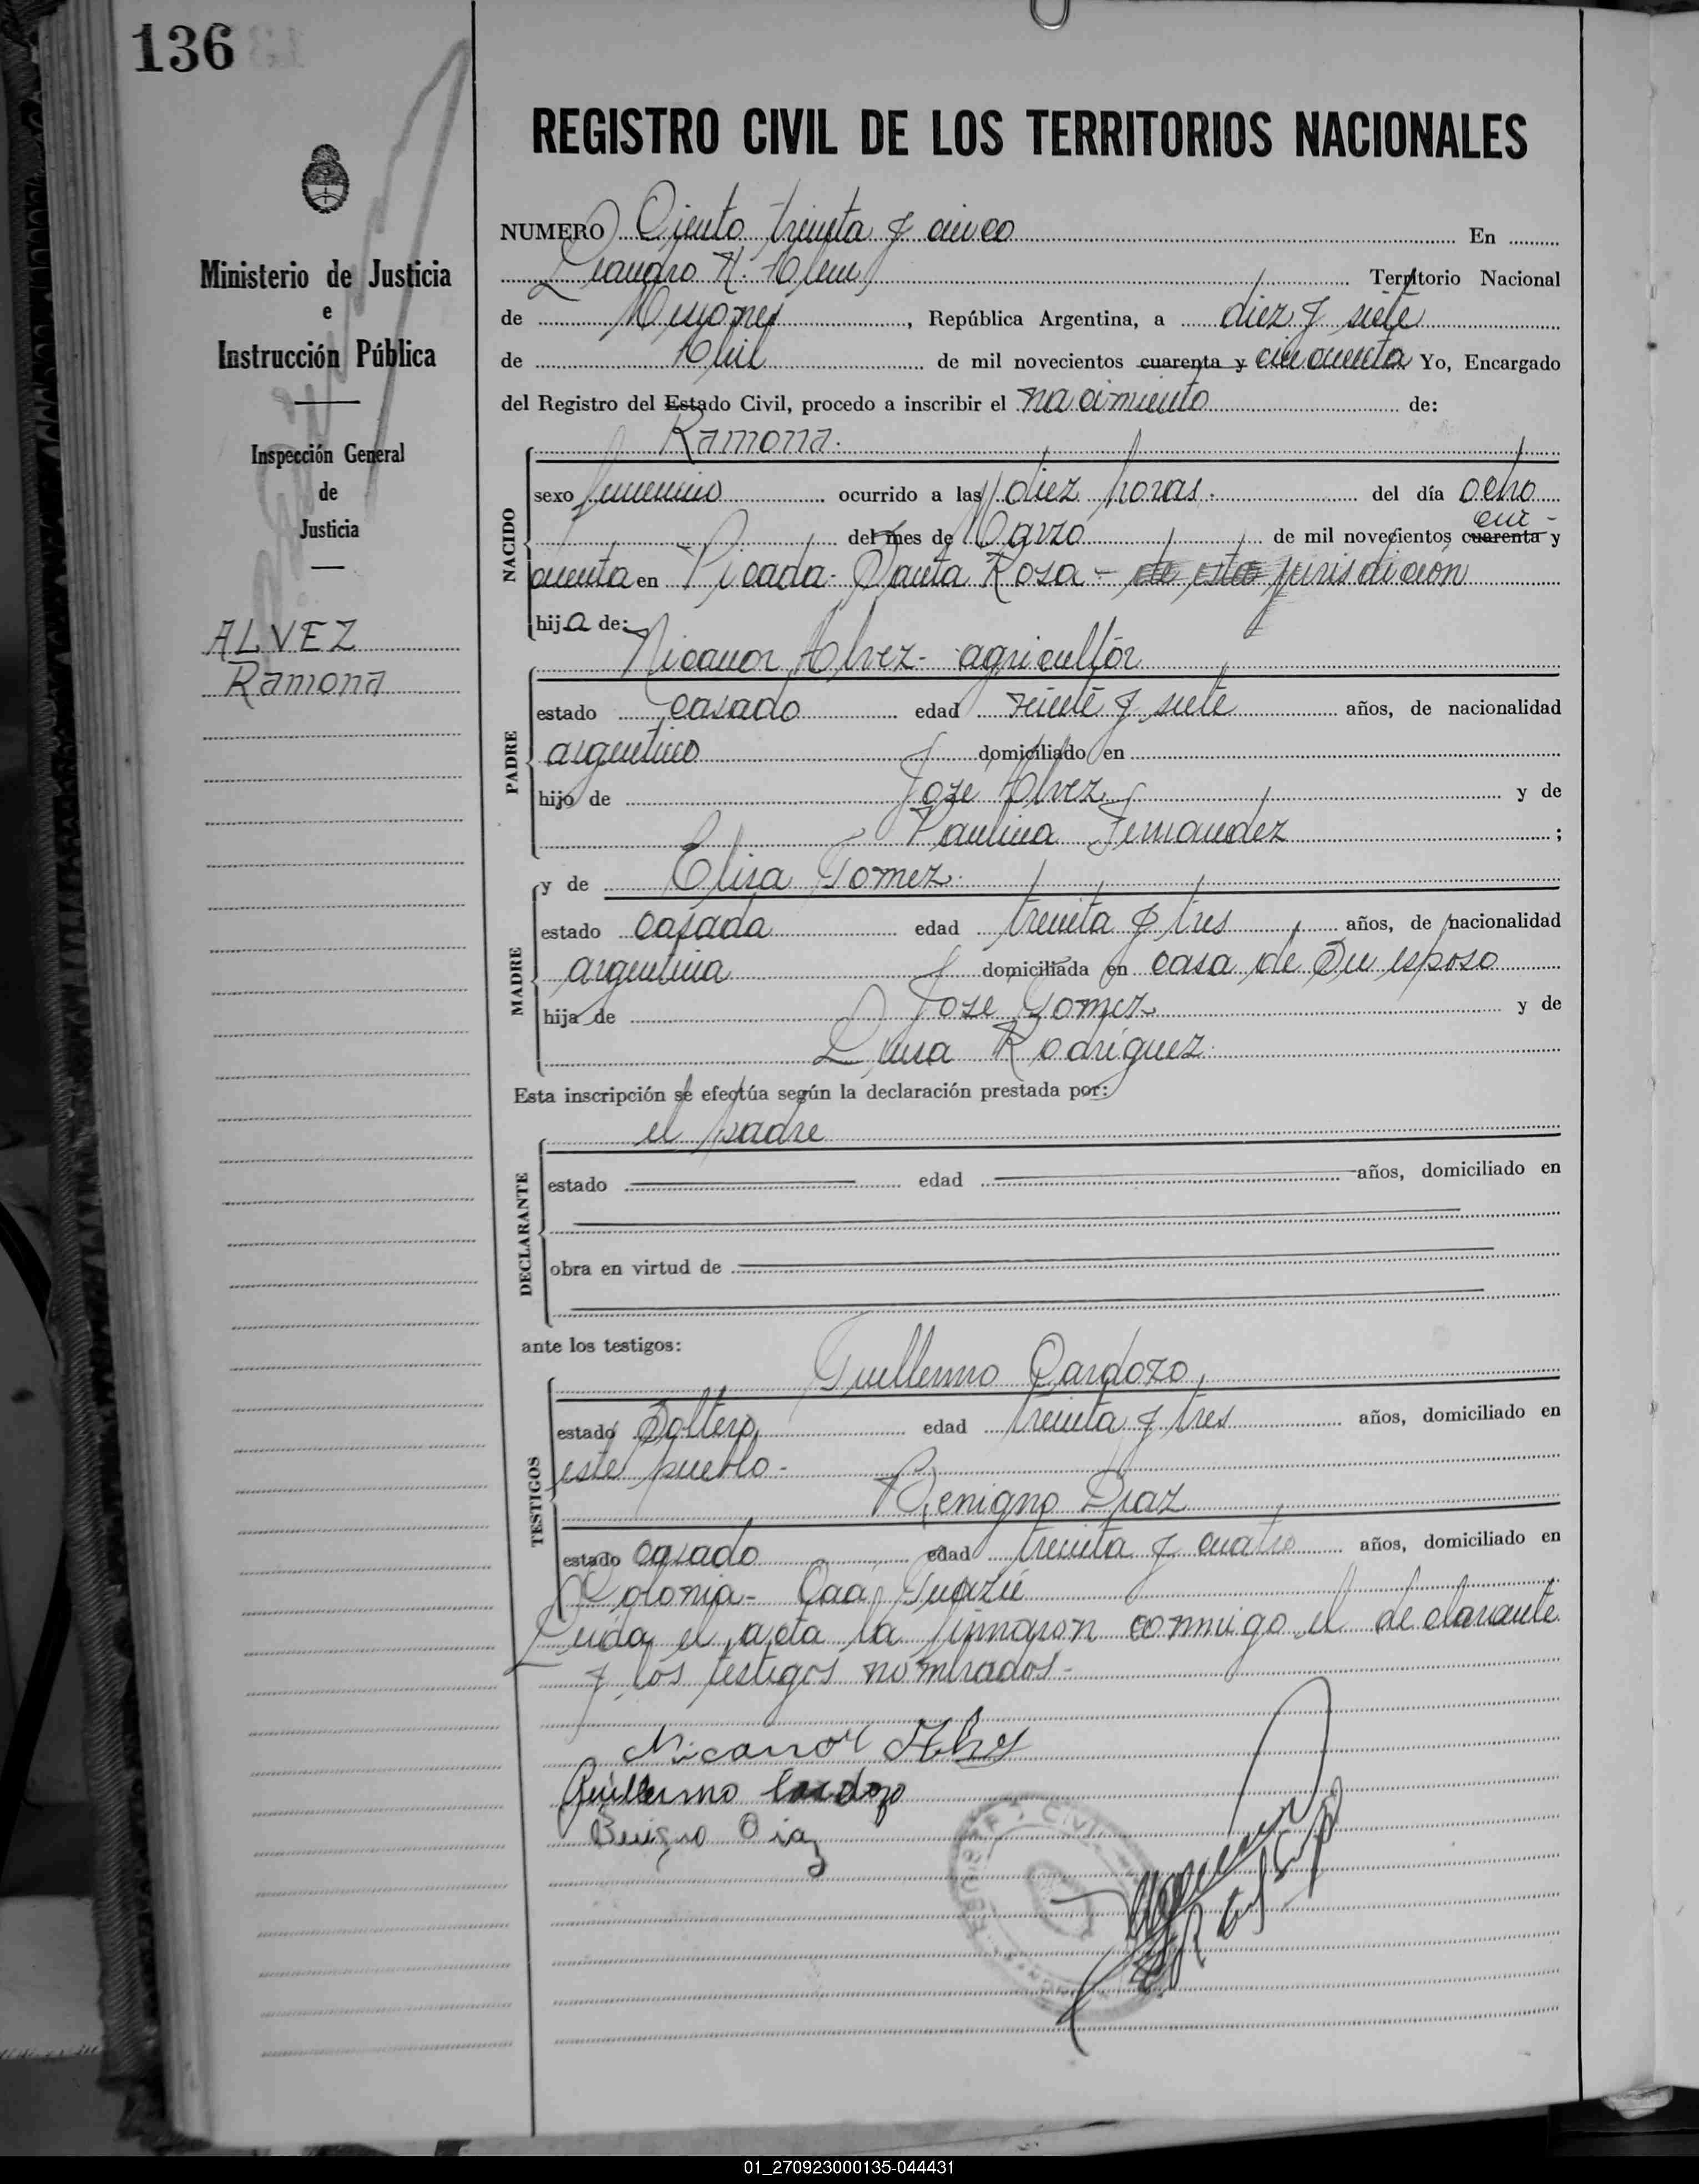 136
REGISTRO CIVIL DE LOS TERRITORIOS NACIONALES
Ministerio de Justicia
e
Instrucción Pública
Inspección General
de
Justicia
ALVEZ
Ramona
NUMERO Ciento treinta y cinco En
Leandro N. Alem Territorio Nacional
de Misiones, República Argentina, a diez y siete
de Abril de mil novecientos cuarenta y cincuenta Yo, Encargado
del Registro del Estado Civil, procedo a inscribir el nacimiento de:
Ramona.
NACIDO
sexo femenino ocurrido a las diez horas. del día ocho
del mes de Marzo de mil novecientos cuarenta y cin-
cuenta en Picada - Santa Rosa - de esta jurisdicion
hija de:
Nicanor Alvez - agricultor
PADRE
estado casado edad veinte y siete años, de nacionalidad
argentino domiciliado en
hijo de José Alvez y de
Paulina Fernandez ;
y de Elisa Gomez.
MADRE
estado casada edad treinta y tres años, de nacionalidad
argentina domiciliada en casa de Su esposo
hija de José Gomez y de
Luisa Rodriguez.
Esta inscripción se efectúa según la declaración prestada por:
el padre
DECLARANTE
estado edad años, domiciliado en
obra en virtud de
ante los testigos:
Guillermo Cardozo
TESTIGOS
estado Soltero edad treinta y tres años, domiciliado en
este pueblo -
Benigno Diaz
estado casado edad treinta y cuatro años, domiciliado en
Colonia - Caá Guazú
Leida el acta la firmaron conmigo el declarante
y los testigos nombrados -
Nicanor Alves
Guillermo Cardozo
Benigno Diaz
CIVIL
01_270923000135-044431